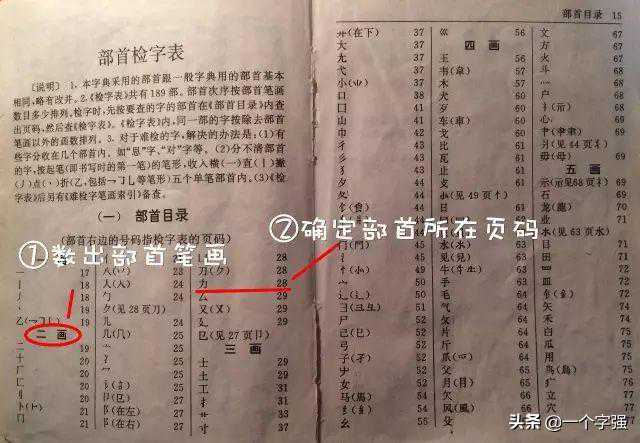 部首目录 15
部首检字表
〔说明〕 1. 本字典采用的部首跟一般字典用的部首基本
相同,略有改并。2.《检字表》共有189部。部首次序按部首笔画
数目多少排列。检字时,先按要查的字的部首在《部首目录》内查
出页码,然后查《检字表》。《检字表》内,同一部的字按除去部首
笔画以外的画数排列。3. 对于难检的字,解决的办法是:(1)有
些字分收在几个部首内。如“思”字、“对”字等。(2)分不清部首
的字,按起笔(即书写时的第一笔)的笔形,收入横(一)直(丨)撇
(丿)点(丶)折(乙,包括乛𠃌乚等笔形)五个单笔部首内。(3)《检
字表》后另有《难检字笔画索引》备查。
(一) 部首目录
(部首右边的号码指检字表的页码)
①数出部首笔画
②确定部首所在页码
一 17
丨 18
丿 18
乙 19
二 画
二 19
十 20
厂 20
匚 21
刂 21
卜 21
冂 21
八(丷)
人(入)
勹 24
(见28页刀)
儿 24
几(几) 25
亠 25
冫
阝(在左)
阝(在右)
28
刀 28
力 28
厶 29
又(又) 29
廴 29
(见27页卩)
三 画
士 29
土 29
工 31
扌 31
艹
寸 37
廾(在下) 37
大 37
尢 37
弋 37
小 38
口 38
囗 41
山 41
巾 42
彳 42
彡 43
夕 44
夂 44
犭 44
饣(食)
门(門) 45
氵 45
忄
宀 50
辶 51
彐 52
尸 52
己(巳) 52
弓 53
子 53
女 53
纟(糸) 54
马(馬) 54
幺 55
巛 56
四 画
王 56
韦(韋) 57
木 57
犬 60
歹 60
车(車) 60
戈 61
比 61
瓦 61
止 61
(见49页忄)
日
水(氺) 63
见(見) 63
牛 63
手 63
毛 64
气 64
片 65
斤 65
爪 65
父 65
月 65
欠 66
风(風) 66
殳 67
文 67
方 67
火 67
斗 68
灬 68
户 68
心 69
(见64页爫)
毋(母) 69
五 画
示(礻见68页礻)
石
龙(龍)
业
水(氵见63页水)
目
田
钅(金)
矢 74
禾 74
白 75
瓜 75
用 75
鸟(鳥) 75
疒 76
立 77
穴 77
头条 @一个字强